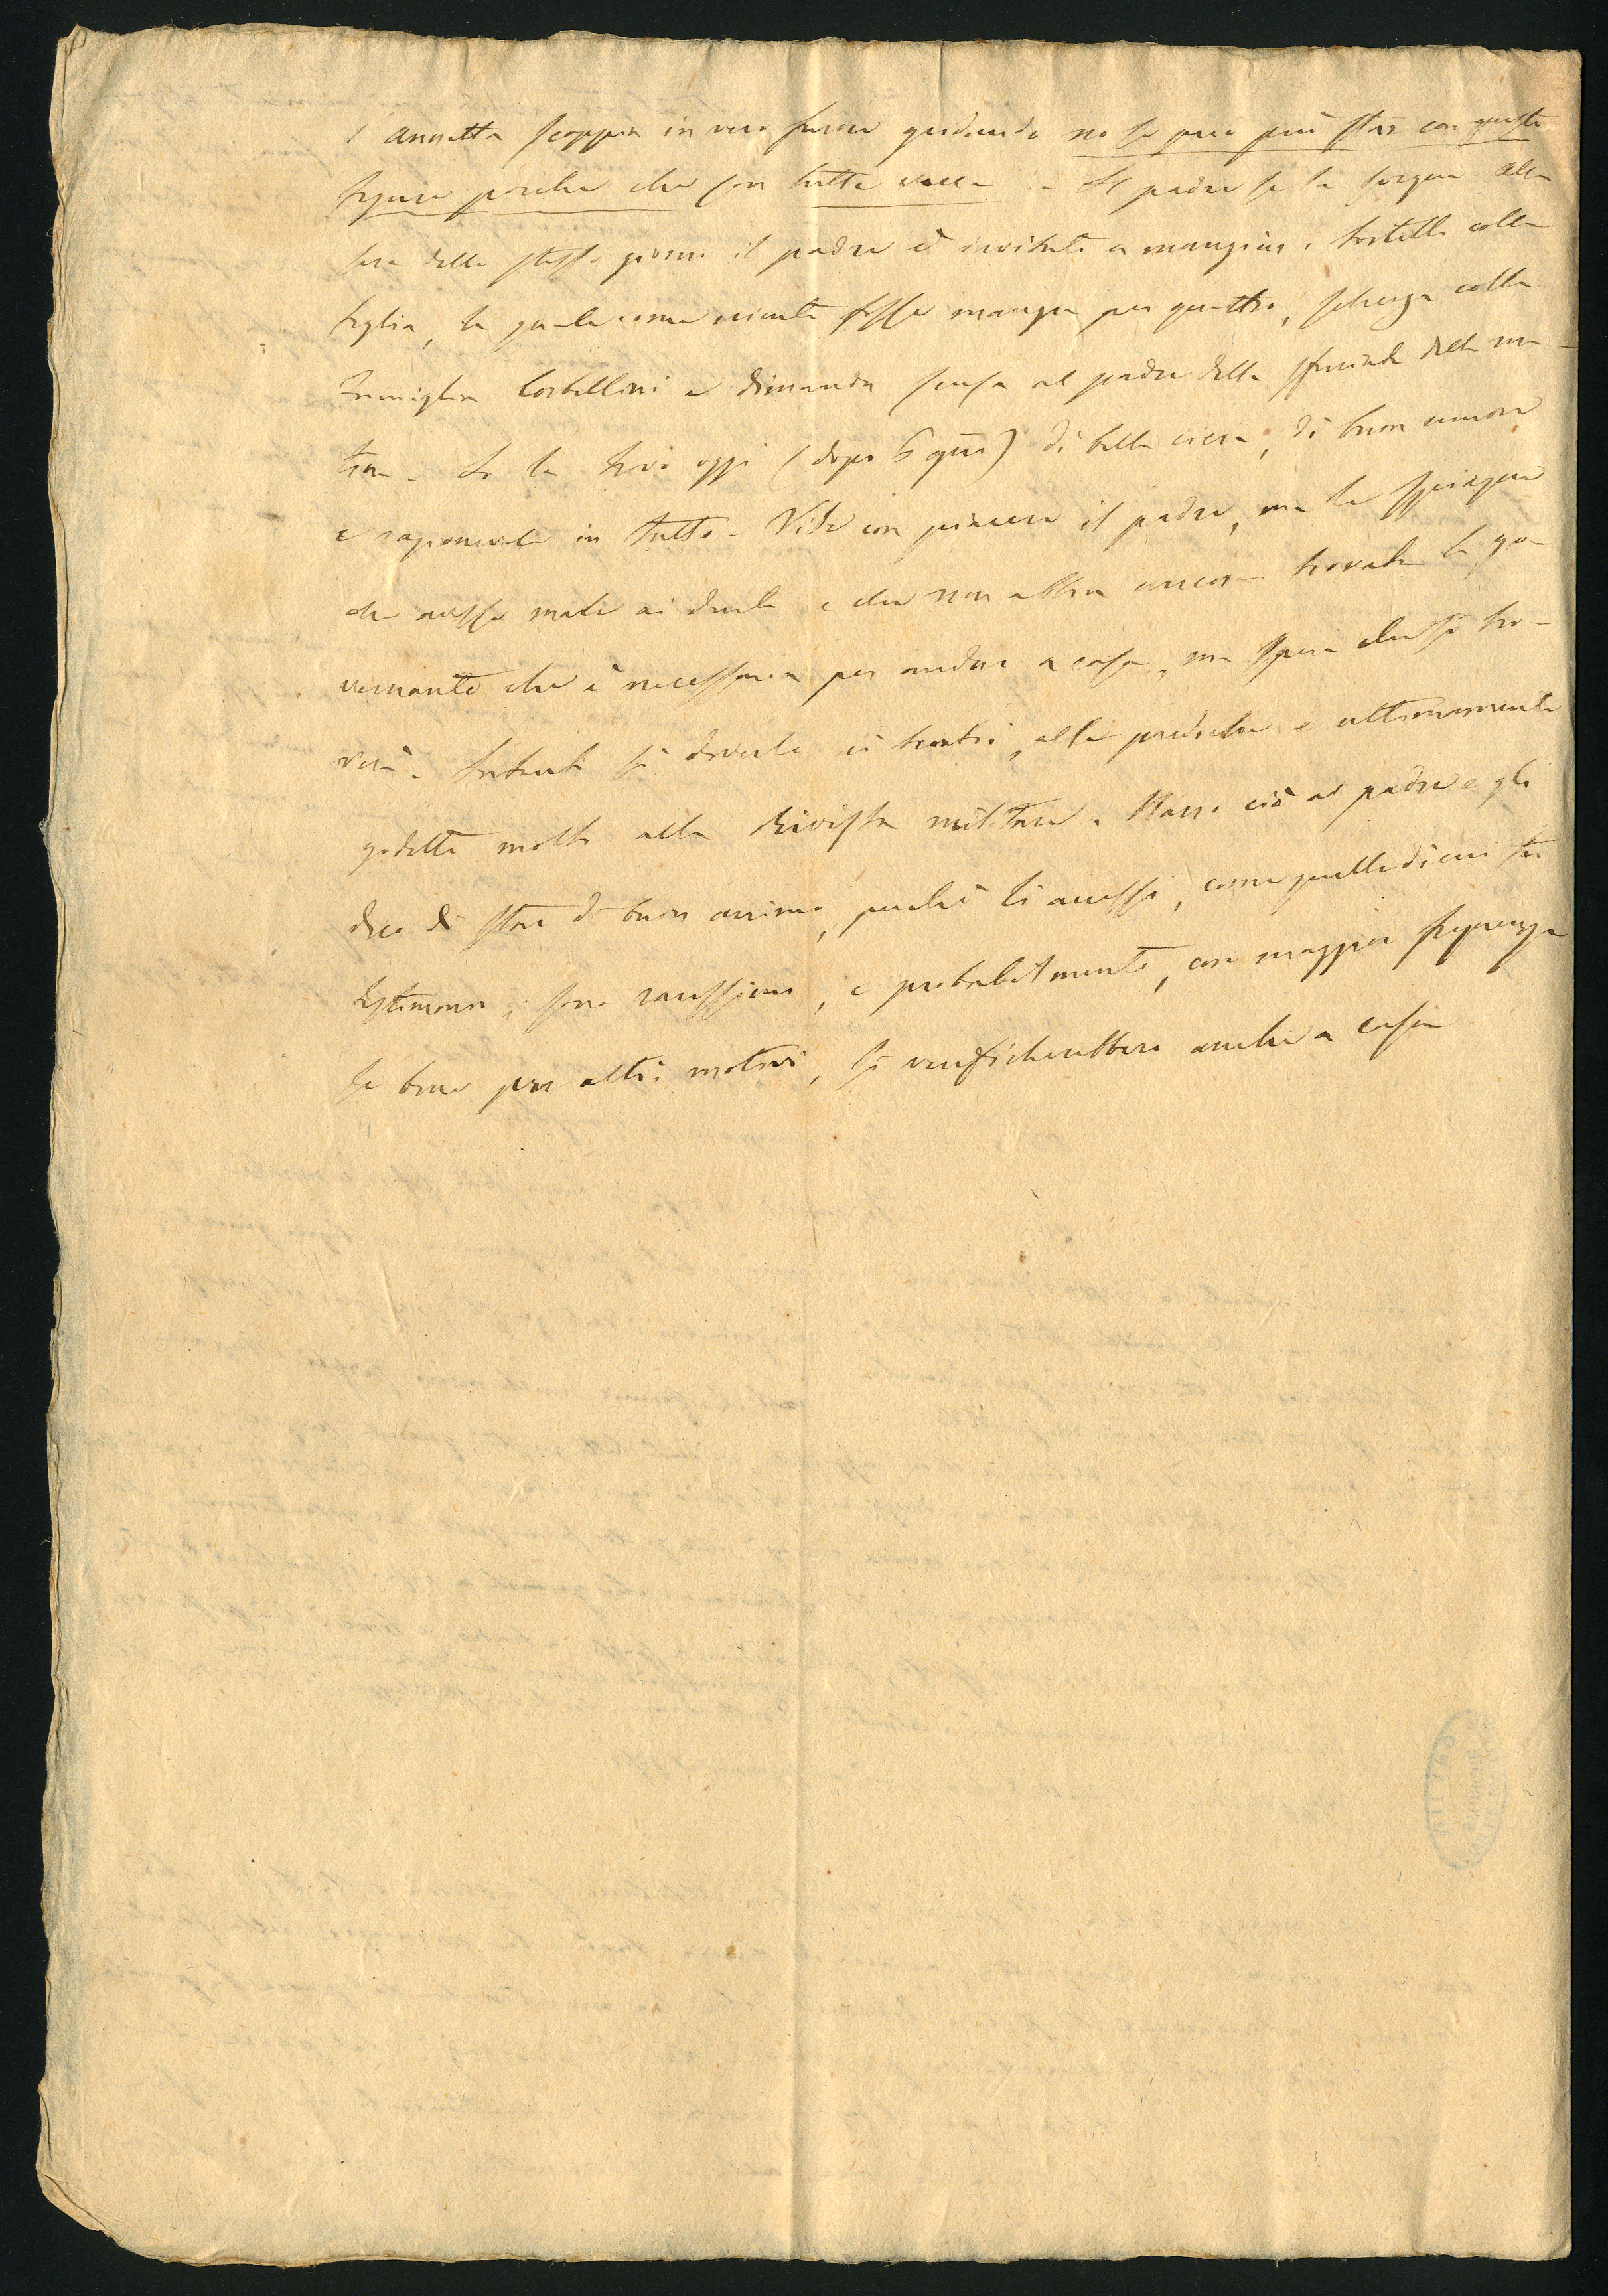 l'Annetta scoppia in vero furore gridando no se pue più star con queste
figure porche che son tutte vacca - Il padre se la svigna. Alla
sera dello stesso giorno il padre è invitato a mangiar i tortelli colla
figlia, la quale come niente fosse mangia per quattro, scherza colla
famiglia Cortellini e dimanda scusa al padre della sfuriata della mat
tina. Io la trovo oggi (dopo 6 gni) di bella ciera, di buon umore
e ragionevole in tutto. Vide con piacere il padre, ma le spiacque
che avesse male ai denti e che non abbia ancora trovata la go-
vernante che è necessaria per andare a casa, ma spera che si tro-
verà. Intanto si diverte ai teatri, alle prediche e ultimamente
godette molto alla Rivista militare. Narro ciò al padre e gli
dico di stare di buon animo, perchè li accessi, come quello di cui fu
testimonio, sono rarissimi, e probabilmente, con maggior frequenza
se bene per altri motivi, si verificherebbero anche a casa
MILANO